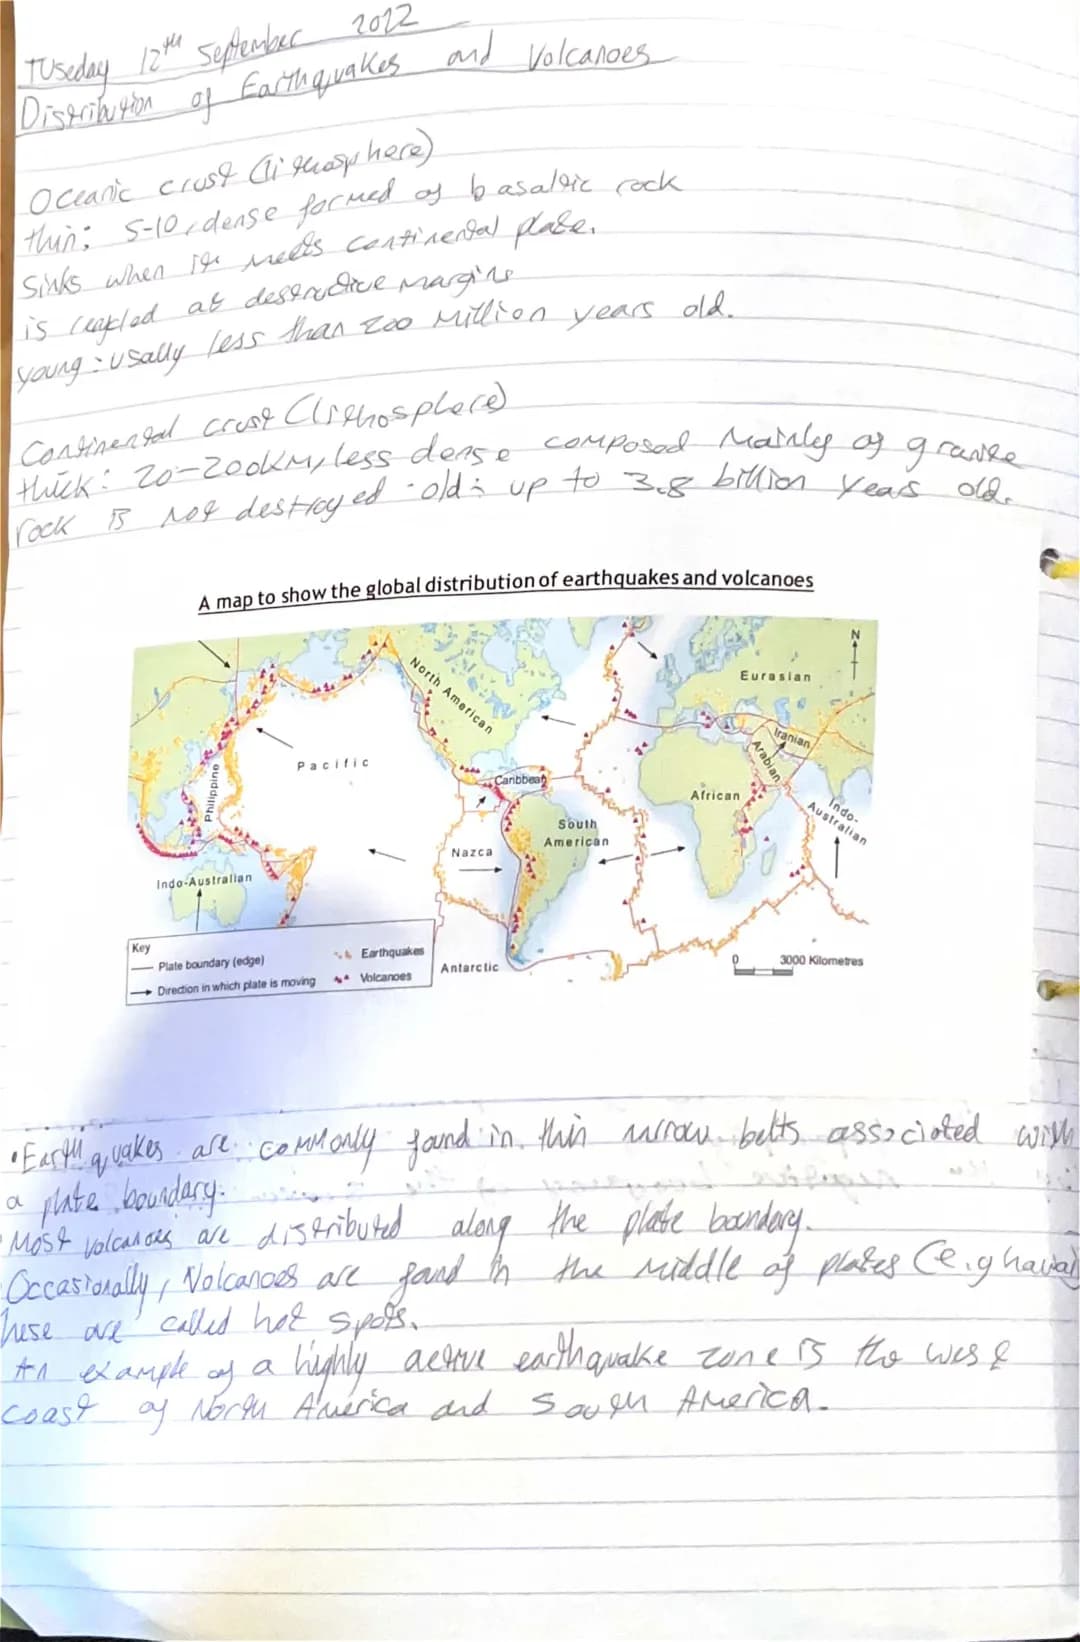 TUseday 12th September 2022
Distribution of Earthquakes and Volcanoes
Oceanic crust (lithosphere)
thin: 5-10, dense formed of basaltic rock
Sinks when it meets continental plate.
is recycled at destructive margins
young: usally less than 200 million years old.
Continental crust (lithosphere)
thick: 20-200km, less dense composed mainley of granite
rock is not destroyed · old: up to 3.8 billion years old.
A map to show the global distribution of earthquakes and volcanoes
N
North American
Eurasian
Iranian
Arabian
Pacific
Philippine
Caribbean
African
Indo-
Australian
South
American
Nazca
Indo-Australian
Key
Plate boundary (edge)
Earthquakes
Direction in which plate is moving
Volcanoes
Antarctic
0 3000 Kilometres
• Earthquakes are commonly found in thin narrow belts associated with
a plate boundary.
Most volcanoes are distributed along the plate boundary.
Occasionally, Volcanoes are found in the middle of plates (e.g
these are called hot spots.
An example of a highly active earthquake zone is the west
coast of North America and South America.